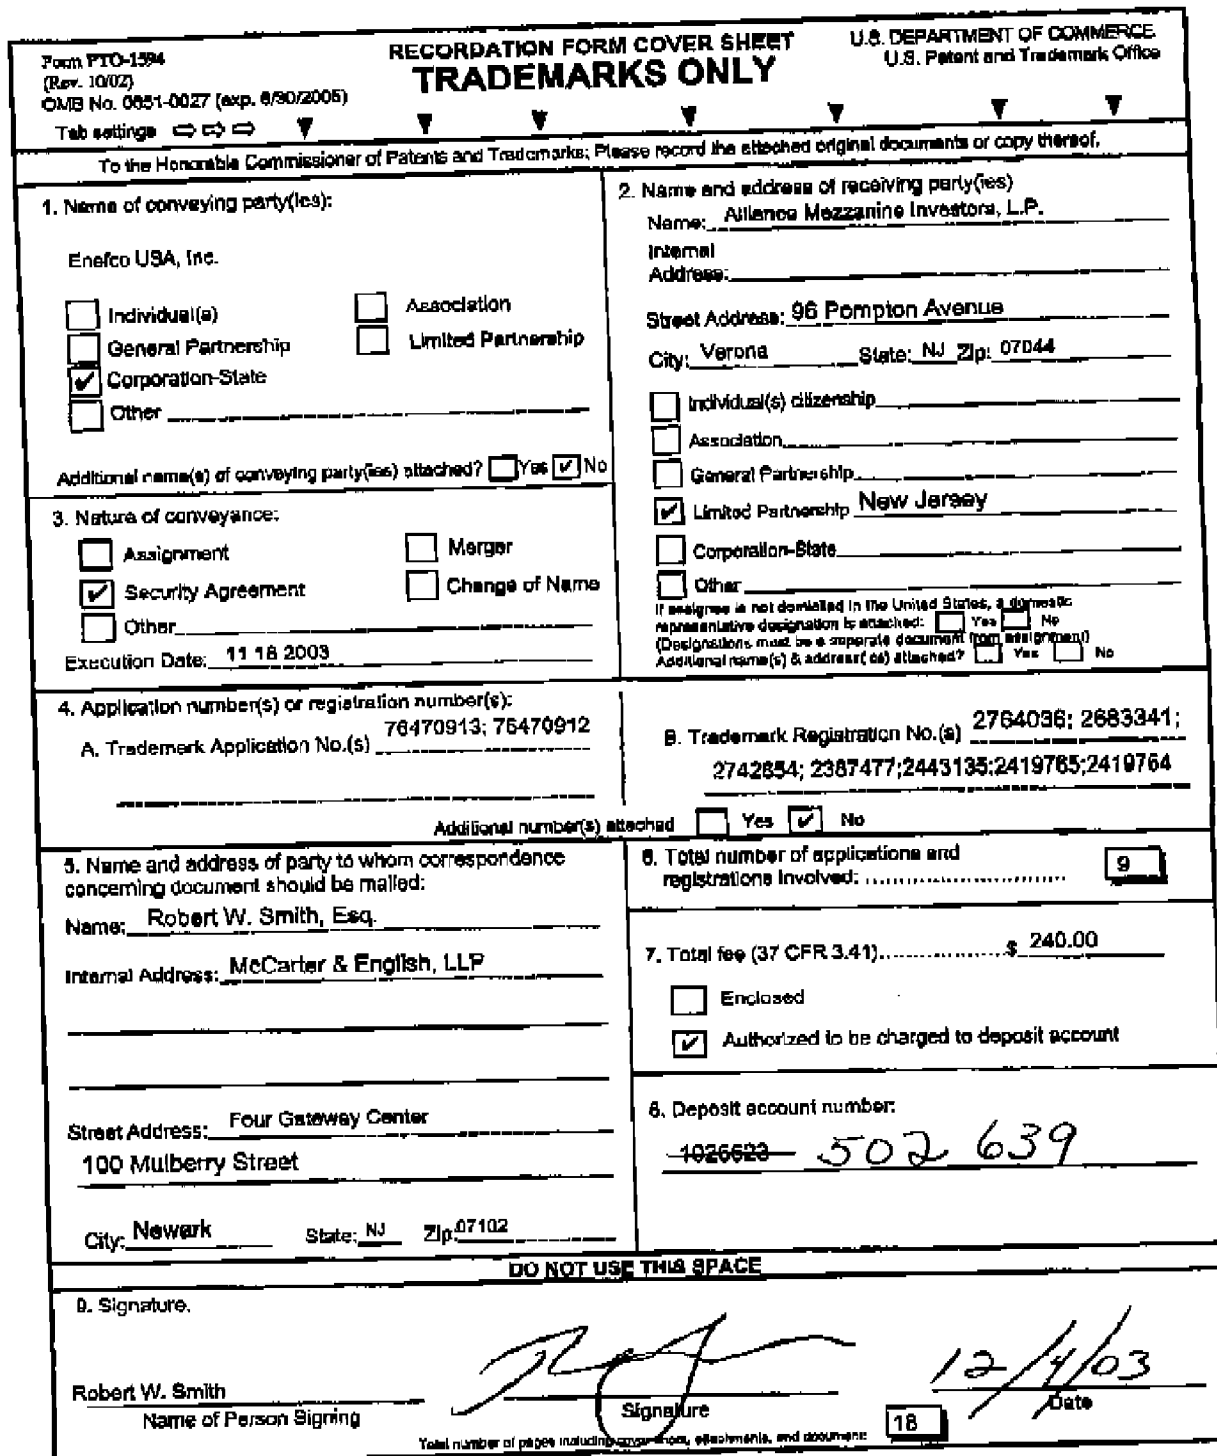 Form PTO-1594
(Rev. 10/02)
OMB No. 0651-0027 (exp. 6/30/2005)
Tab settings
RECORDATION FORM COVER SHEET
TRADEMARKS ONLY
U.S. DEPARTMENT OF COMMERCE
U.S. Patent and Trademark Office
To the Honorable Commissioner of Patents and Trademarks: Please record the attached original documents or copy thereof.
1. Name of conveying party(ies):
Enefco USA, Inc.
Individual(s)
Association
General Partnership
Limited Partnership
Corporation-State
Other
Additional name(s) of conveying party(ies) attached? Yes No
2. Name and address of receiving party(ies)
Name: Alliance Mezzanine Investors, L.P.
Internal
Address:
Street Address: 96 Pompton Avenue
City: Verona State: NJ Zip: 07044
Individual(s) citizenship
Association
General Partnership
Limited Partnership New Jersey
Corporation-State
Other
If assignee is not domiciled in the United States, a domestic
representative designation is attached: Yes No
(Designations must be a separate document from assignment)
Additional name(s) & address(es) attached? Yes No
3. Nature of conveyance:
Assignment
Merger
Security Agreement
Change of Name
Other
Execution Date: 11 18 2003
4. Application number(s) or registration number(s):
A. Trademark Application No.(s) 76470913; 76470912
B. Trademark Registration No.(s) 2764036; 2683341;
2742854; 2387477;2443135;2419765;2419764
Additional number(s) attached Yes No
5. Name and address of party to whom correspondence
concerning document should be mailed:
Name: Robert W. Smith, Esq.
Internal Address: McCarter & English, LLP
Street Address: Four Gateway Center
100 Mulberry Street
City: Newark State: NJ Zip: 07102
6. Total number of applications and
registrations involved: 9
7. Total fee (37 CFR 3.41) $ 240.00
Enclosed
Authorized to be charged to deposit account
8. Deposit account number:
1026623 502 639
DO NOT USE THIS SPACE
9. Signature.
Robert W. Smith
Name of Person Signing
Signature
12/4/03
Date
Total number of pages including cover sheet, attachments, and document: 18